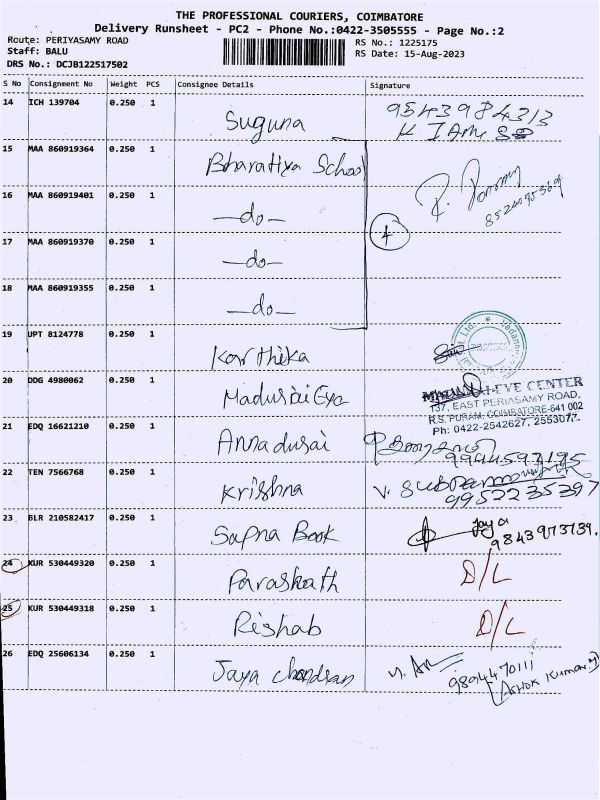 THE PROFESSIONAL COURIERS, COIMBATORE
Delivery Runsheet - PC2 - Phone No.:0422-3505555 - Page No.:2
Route: PERIYASAMY ROAD
Staff: BALU
DRS No.: DCJB122517502
RS No.: 1225175
RS Date: 15-Aug-2023
S No Consignment No Weight PCS Consignee Details Signature
14 ICH 139704 0.250 1 Suguna 9543984313
15 MAA 860919364 0.250 1 Bharatiya School
16 MAA 860919401 0.250 1 -do- 8524095369
4
17 MAA 860919370 0.250 1 -do-
18 MAA 860919355 0.250 1 -do-
19 UPT 8124778 0.250 1 Karthika
20 DDG 4980062 0.250 1 Madurai Eye
EYE CENTER
137, EAST PERIASAMY ROAD,
R.S. PURAM, COIMBATORE-641 002
Ph: 0422-2542627, 2553077.
21 EDQ 16621210 0.250 1 Annadurai 9944597195
22 TEN 7566768 0.250 1 Krishna V. 9952235397
23 BLR 210582417 0.250 1 Sapna Book Jaya
9843973739.
24 KUR 530449320 0.250 1 Paraskath D/L
25 KUR 530449318 0.250 1 Rishab D/L
26 EDQ 25606134 0.250 1 Jaya Chandran 9894470111
Ashok Kumar